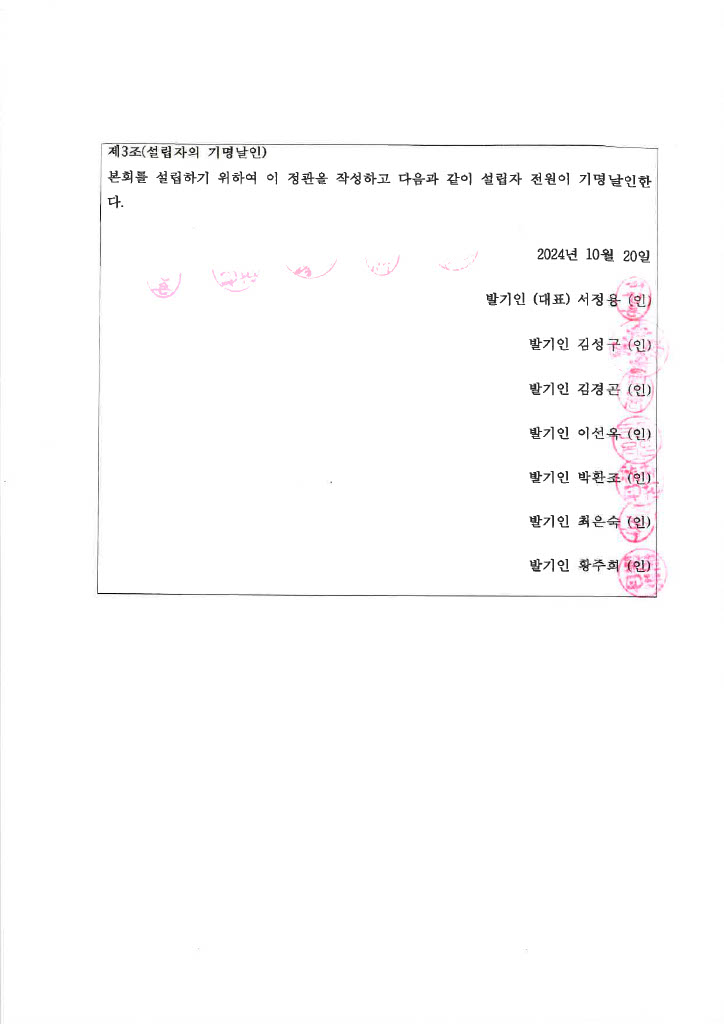 제3조(설립자의 기명날인)
본회를 설립하기 위하여 이 정관을 작성하고 다음과 같이 설립자 전원이 기명날인한
다.
2024년 10월 20일
발기인 (대표) 서정용 (인)
발기인 김성구 (인)
발기인 김경곤 (인)
발기인 이선옥 (인)
발기인 박환조 (인)
발기인 최은숙 (인)
발기인 황주희 (인)